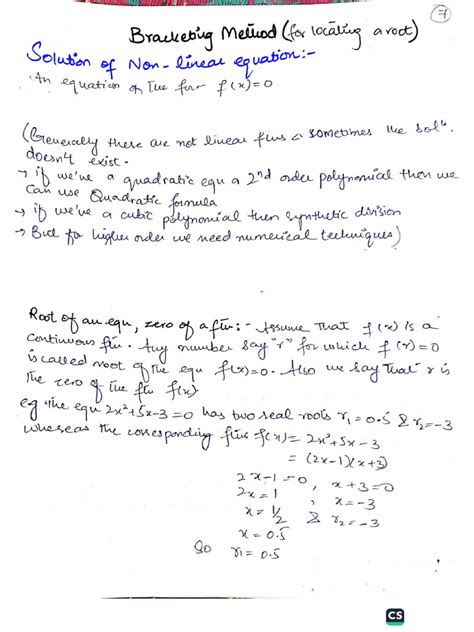 7
Bracketing Method (for locating a root)
Solution of Non-linear equation:-
An equation of the form f(x)=0
(Generally these are not linear ftns & sometimes the solⁿ.
doesn't exist.
→ if we've a quadratic equ a 2nd order polynomial then we
can use Quadratic formula
→ if we've a cubic polynomial then synthetic division
→ But for higher order we need numerical techniques)
Root of an equ, zero of a ftn:- Assume that f(x) is a
continuous ftn. Any number say "r" for which f(x)=0
is called root of the equ f(x)=0. Also we say that r is
the zero of the ftn f(x)
eg The equ 2x²+5x-3=0 has two real roots r₁=0.5 & r₂=-3
whereas the corresponding ftn f(x)= 2x²+5x-3
= (2x-1)(x+3)
2x-1=0 , x+3=0
2x=1 , x=-3
x=1/2 & r₂=-3
x=0.5
So r₁=0.5
CS